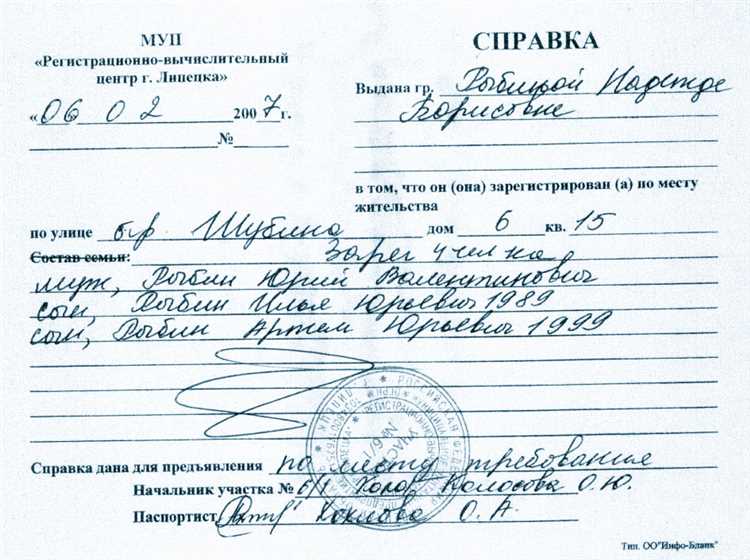 МУП
«Регистрационно-вычислительный
центр г. Липецка»
«06 02 2007 г.
№
СПРАВКА
Выдана гр. Рыбиной Надежде
Борисовне
в том, что он (она) зарегистрирован (а) по месту
жительства
по улице б-р Шубина дом 6 кв. 15
Состав семьи: Зарег 4 чел на
муж, Рыбин Юрий Валентинович
сын, Рыбин Илья Юрьевич 1989
сын, Рыбин Артем Юрьевич 1999
Справка дана для предъявления по месту требования
Начальник участка № 6/1 Колосова О.Ю.
Паспортист Хохлова О. А.
РОССИЙСКАЯ
УЧАСТОК
№ 6/1
Тип. ОО"Инфо-Бланк"